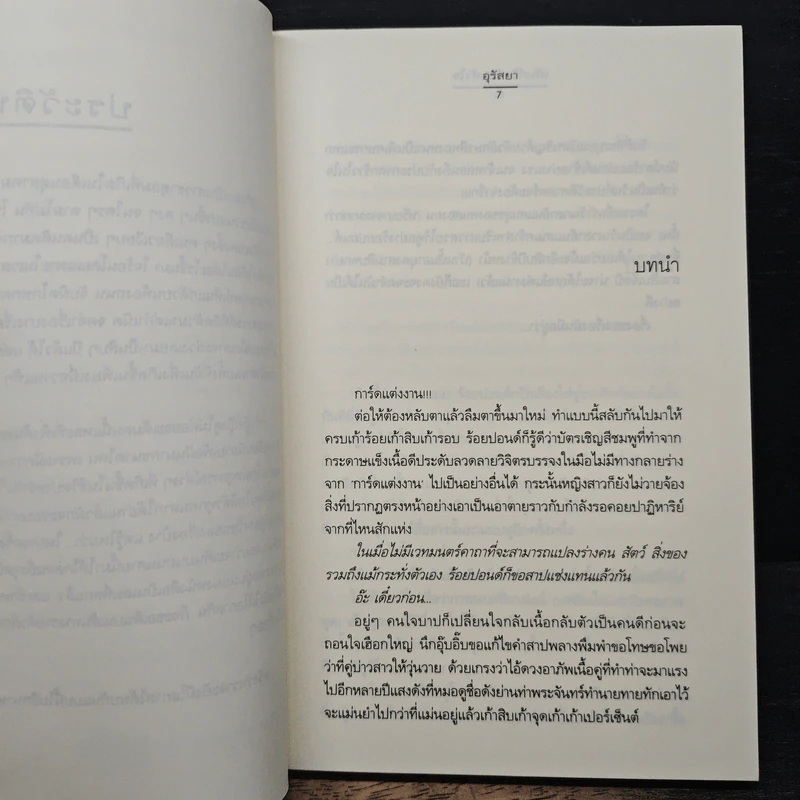 อุรัสยา
7
บทนำ
การ์ดแต่งงาน!!!
ต่อให้ต้องหลับตาแล้วลืมตาขึ้นมาใหม่ ทำแบบนี้สลับกันไปมาให้
ครบเก้าร้อยเก้าสิบเก้ารอบ ร้อยปอนด์ก็รู้ดีว่าบัตรเชิญสีชมพูที่ทำจาก
กระดาษแข็งเนื้อดีประดับลวดลายวิจิตรบรรจงในมือไม่มีทางกลายร่าง
จาก 'การ์ดแต่งงาน' ไปเป็นอย่างอื่นได้ กระนั้นหญิงสาวก็ยังไม่วายจ้อง
สิ่งที่ปรากฏตรงหน้าอย่างเอาเป็นเอาตายราวกับกำลังรอคอยปาฏิหาริย์
จากที่ไหนสักแห่ง
ในเมื่อไม่มีเวทมนตร์คาถาที่จะสามารถแปลงร่างคน สัตว์ สิ่งของ
รวมถึงแม้กระทั่งตัวเอง ร้อยปอนด์ก็ขอสาปแช่งแทนแล้วกัน
อ๊ะ เดี๋ยวก่อน...
อยู่ๆ คนใจบาปก็เปลี่ยนใจกลับเนื้อกลับตัวเป็นคนดีก่อนจะ
ถอนใจเฮือกใหญ่ นึกอุ๊บอิ๊บขอแก้ไขคำสาปพลางพึมพำขอโทษขอโพย
ว่าที่คู่บ่าวสาวให้วุ่นวาย ด้วยเกรงว่าไอ้ดวงอาภัพเนื้อคู่ที่ทำท่าจะมาแรง
ไปอีกหลายปีแสงดังที่หมอดูชื่อดังย่านท่าพระจันทร์ทำนายทายทักเอาไว้
จะแม่นยำไปกว่าที่แม่นอยู่แล้วเก้าสิบเก้าจุดเก้าเก้าเปอร์เซ็นต์